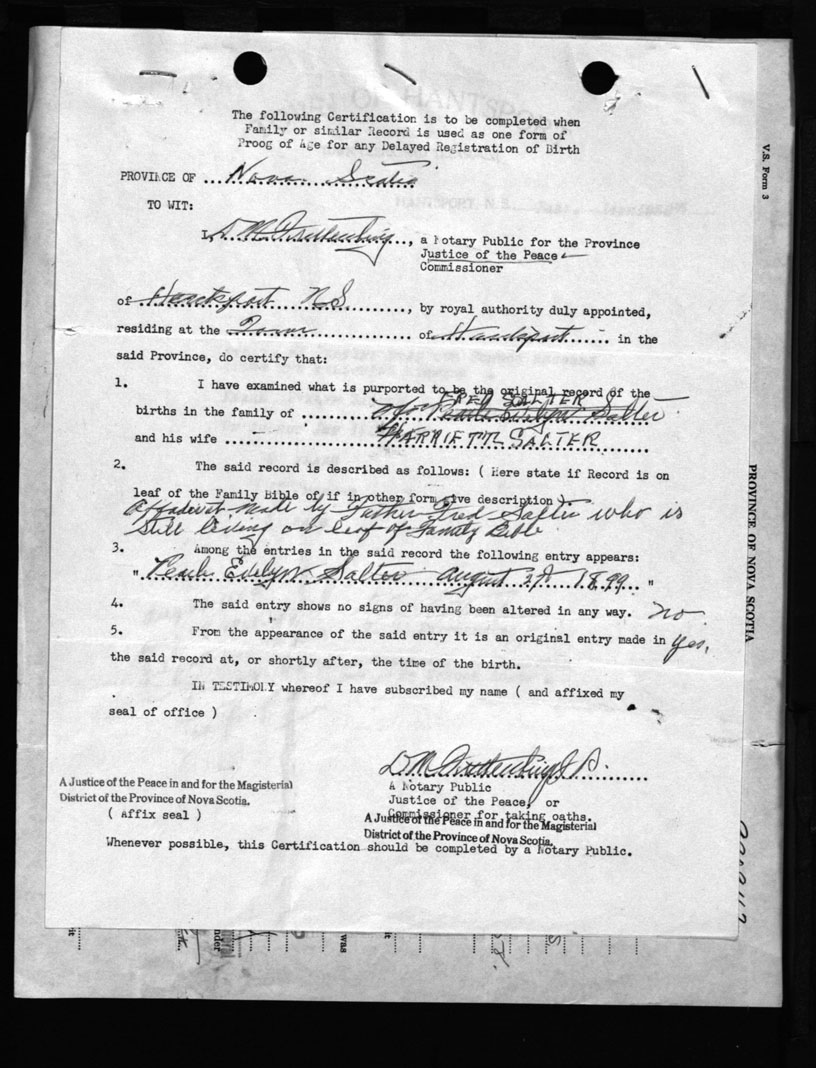 The following Certification is to be completed when
Family or similar Record is used as one form of
Proog of Age for any Delayed Registration of Birth
V.S. Form 3
PROVINCE OF ... Nova Scotia
TO WIT:
I, D M , a Notary Public for the Province
Justice of the Peace
Commissioner
of Hantsport N S ..., by royal authority duly appointed,
residing at the Town ... of Hantsport ... in the
said Province, do certify that:
1. I have examined what is purported to be the original record of the
FRED SALTER
births in the family of ... Pearle Evelyn Salter
and his wife ... HARRIETT SALTER
2. The said record is described as follows: ( Here state if Record is on
leaf of the Family Bible of if in other form give description )
Affadavit made by Father Fred Salter who is
still living on leaf of Family Bible
3. Among the entries in the said record the following entry appears:
" Pearle Evelyn Salter August 1899 "
4. The said entry shows no signs of having been altered in any way. no
5. From the appearance of the said entry it is an original entry made in yes,
the said record at, or shortly after, the time of the birth.
IN TESTIMONY whereof I have subscribed my name ( and affixed my
seal of office )
PROVINCE OF NOVA SCOTIA
D M J P.
A Justice of the Peace in and for the Magisterial
District of the Province of Nova Scotia.
( Affix seal )
A Notary Public
Justice of the Peace, or
Commissioner for taking oaths.
A Justice of the Peace in and for the Magisterial
District of the Province of Nova Scotia.
Whenever possible, this Certification should be completed by a Notary Public.
was